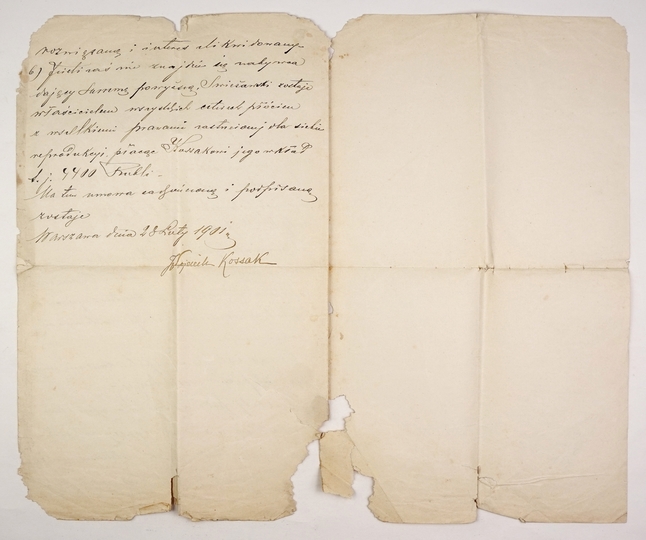 rozwiązaną i interes zlikwidowany
6) Jeżeli zaś nie znajdzie się nabywca
dający sumę powyższą, Świeżawski zostaje
właścicielem wszystkich czterech płócien
z wszelkiemi prawami zastrzeżonej dla siebie
reprodukcji płacąc Kossakowi jego wkład
t. j. 4400 Rubli.
Na tem umowa zakończoną i podpisaną
zostaje
Warszawa dnia 28 Luty 1901 r.
Wojciech Kossak